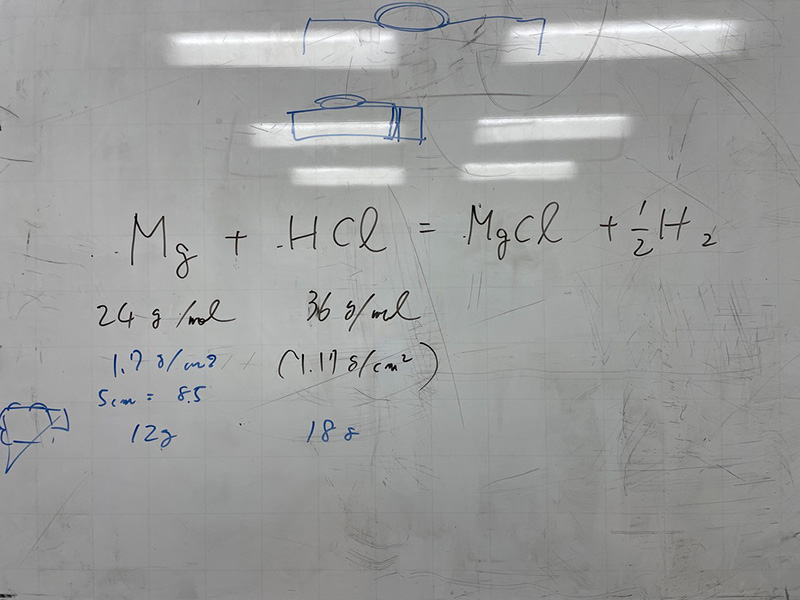 Mg + HCl = MgCl + 1/2 H₂
24 g/mol 36 g/mol
1.7 g/cm² (1.17 g/cm²)
5cm = 8.5
12g 18g